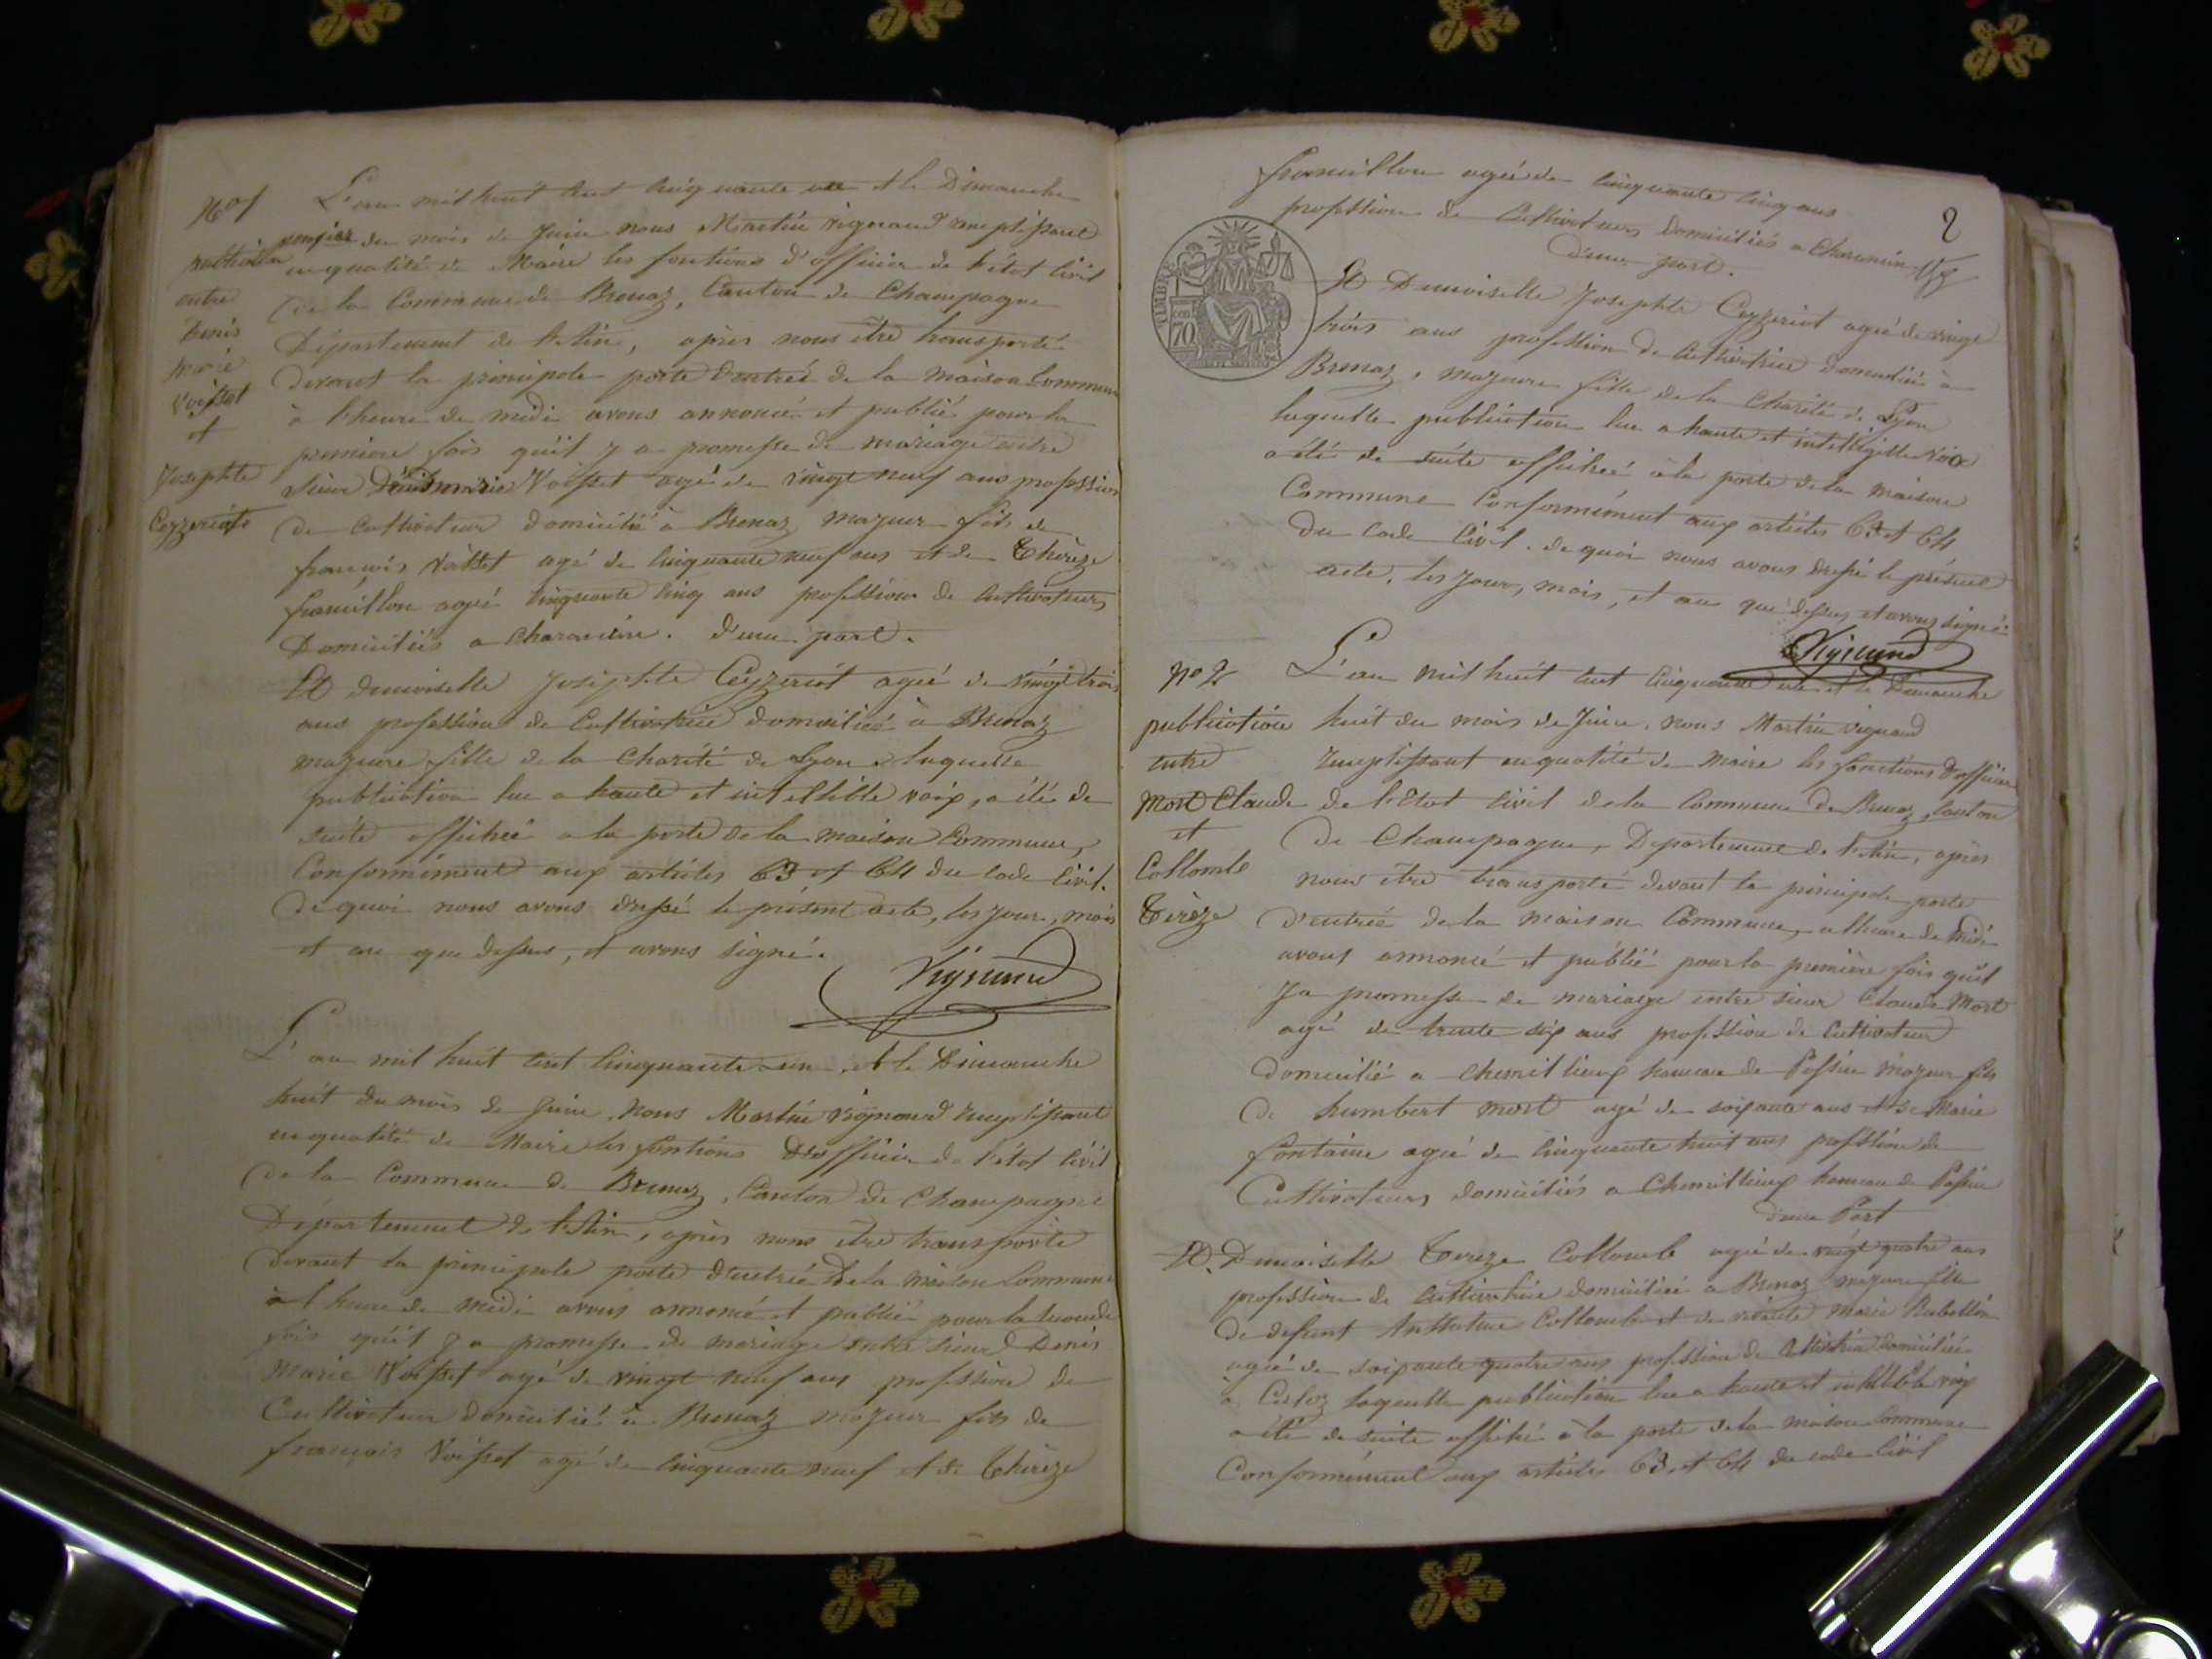 No 1
publication
entre
Denis
Marie
Voisset
et
Josephte
Ceyzeriat
L'an mil huit cent cinquante un et le Dimanche
premier du mois de Juin nous Martin Vignand remplissant
en qualité de Maire les fontions d'officier de l'état Civil
de la Commune de Brenaz, Canton de Champagne
Département de l'Ain, après nous être transporté
devant la principale porte d'entrée de la maison Commune
à l'heure de midi avons annoncé et publié pour la
premiere fois qu'il y a promesse de mariage entre
Sieur Denis marie Voisset agé de vingt neuf ans profession
de cultivateur domicilié à Brenaz majeur fils de
françois Voisset agé de cinquante neuf ans et de Thérèze
framillon agée cinquante cinq ans profession de cultivateurs
Domiciliés a charancin. d'une part.
Et demoiselle Josephte Ceyzeriat agée de vingt trois
ans profession de Cultivatrice domiciliée à Brenaz
majeure fille de la Charité de Lyon laquelle
publication lue a haute et intellible voix, a été de
suite affichée a la porte de la maison Commune,
Conformément aux articles 63 et 64 du code Civil.
De quoi nous avons dressé le présent acte, les jour, mois
et an que dessus, et avons signé.
Vignand
L'an mil huit cent cinquante un, et le Dimanche
huit du mois de Juin, nous Martin Vignand remplissant
en qualité de Maire les fontions d'officier de l'état Civil
de la Commune de Brenaz, Canton de Champagne
Département de l'Ain, après nous être transporté
devant la principale porte d'entrée de la maison Commune
à l'heure de midi avons annoncé et publié pour la seconde
fois qu'il y a promesse de mariage entre sieur Denis
Marie Voisset agé de vingt neuf ans profession de
Cultivateur domicilié à Brenaz majeur fils de
françois Voisset agé de cinquante neuf et de Thérèze
2
framillon agée de cinquante cinq ans
profession de Cultivateurs domiciliés a Charancin
d'une part.
TIMBRE
70
Et Demoiselle Josephte Ceyzeriat agée de vingt
trois ans profession de Cultivatrice domiciliée à
Brenaz, majeure fille de la Charité de Lyon
laquelle publication lue a haute et intelligible voix
a été de suite affichée à la porte de la maison
Commune Conformément aux articles 63 et 64
du code Civil. de quoi nous avons dressé le présent
acte, les jour, mois, et an que dessus, et avons signé.
Vignand
no 2
publication
entre
Mort Claude
et
Collomb
Terèze
L'an mil huit cent cinquante un et le Dimanche
huit du mois de Juin, nous Martin Vignand
remplissant en qualité de Maire les fonctions d'officier
de l'Etat Civil de la Commune de Brenaz, Canton
de Champagne, Département de l'Ain, après
nous être transporté devant la principale porte
d'entrée de la maison Commune, a l'heure de midi
avons annoncé et publié pour la première fois qu'il
y a promesse de mariage entre sieur Claude Mort
agé de trente six ans profession de Cultivateur
domicilié a Chemillieux hameau de Passin majeur fils
de humbert mort agé de soixante ans et de Marie
fontaine agée de cinquante huit ans profession de
Cultivateurs domiciliés a Chemillieux hameau de Passin
d'une Part
Et Demoiselle Tereze Collomb agée de vingt quatre ans
profession de Cultivatrice domiciliée a Brenaz majeure fille
de defunt Anthelme Collomb et de vivante Marie
agée de soixante quatre ans profession de Cultivatrice domiciliée
à laquelle publication lue a haute et intellible voix
a été de suite affiché à la porte de la maison Commune
Conformément aux articles 63 et 64 du code Civil